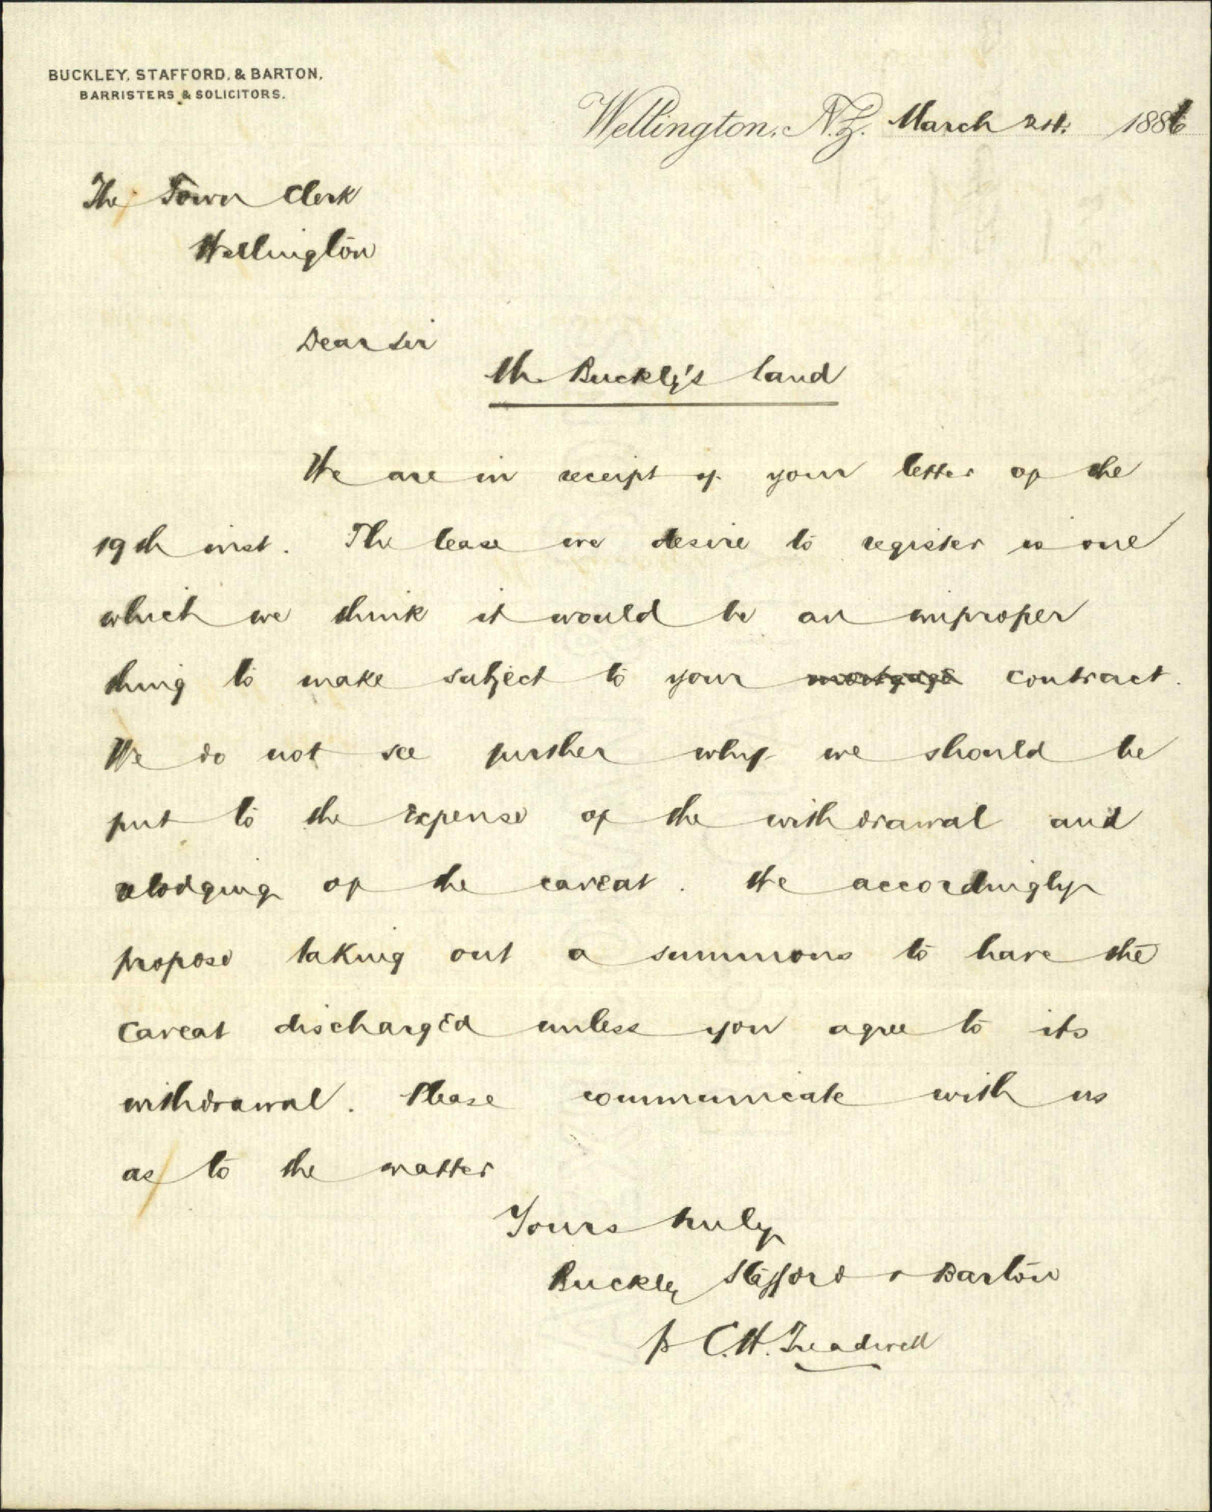 BUCKLEY, STAFFORD, & BARTON,
BARRISTERS & SOLICITORS.
Wellington, N.Z. March 24. 1886
The Town Clerk
Wellington
Dear Sir
Mr Buckley's land
We are in receipt of your letter of the
19th inst. The lease we desire to register is one
which we think it would be an improper
thing to make subject to your mortgage contract.
We do not see further why we should be
put to the expense of the withdrawal and
relodging of the caveat. We accordingly
propose taking out a summons to have the
caveat discharged unless you agree to its
withdrawal. Please communicate with us
as to the matter
Yours truly
Buckley Stafford & Barton
p C.H. Treadwell